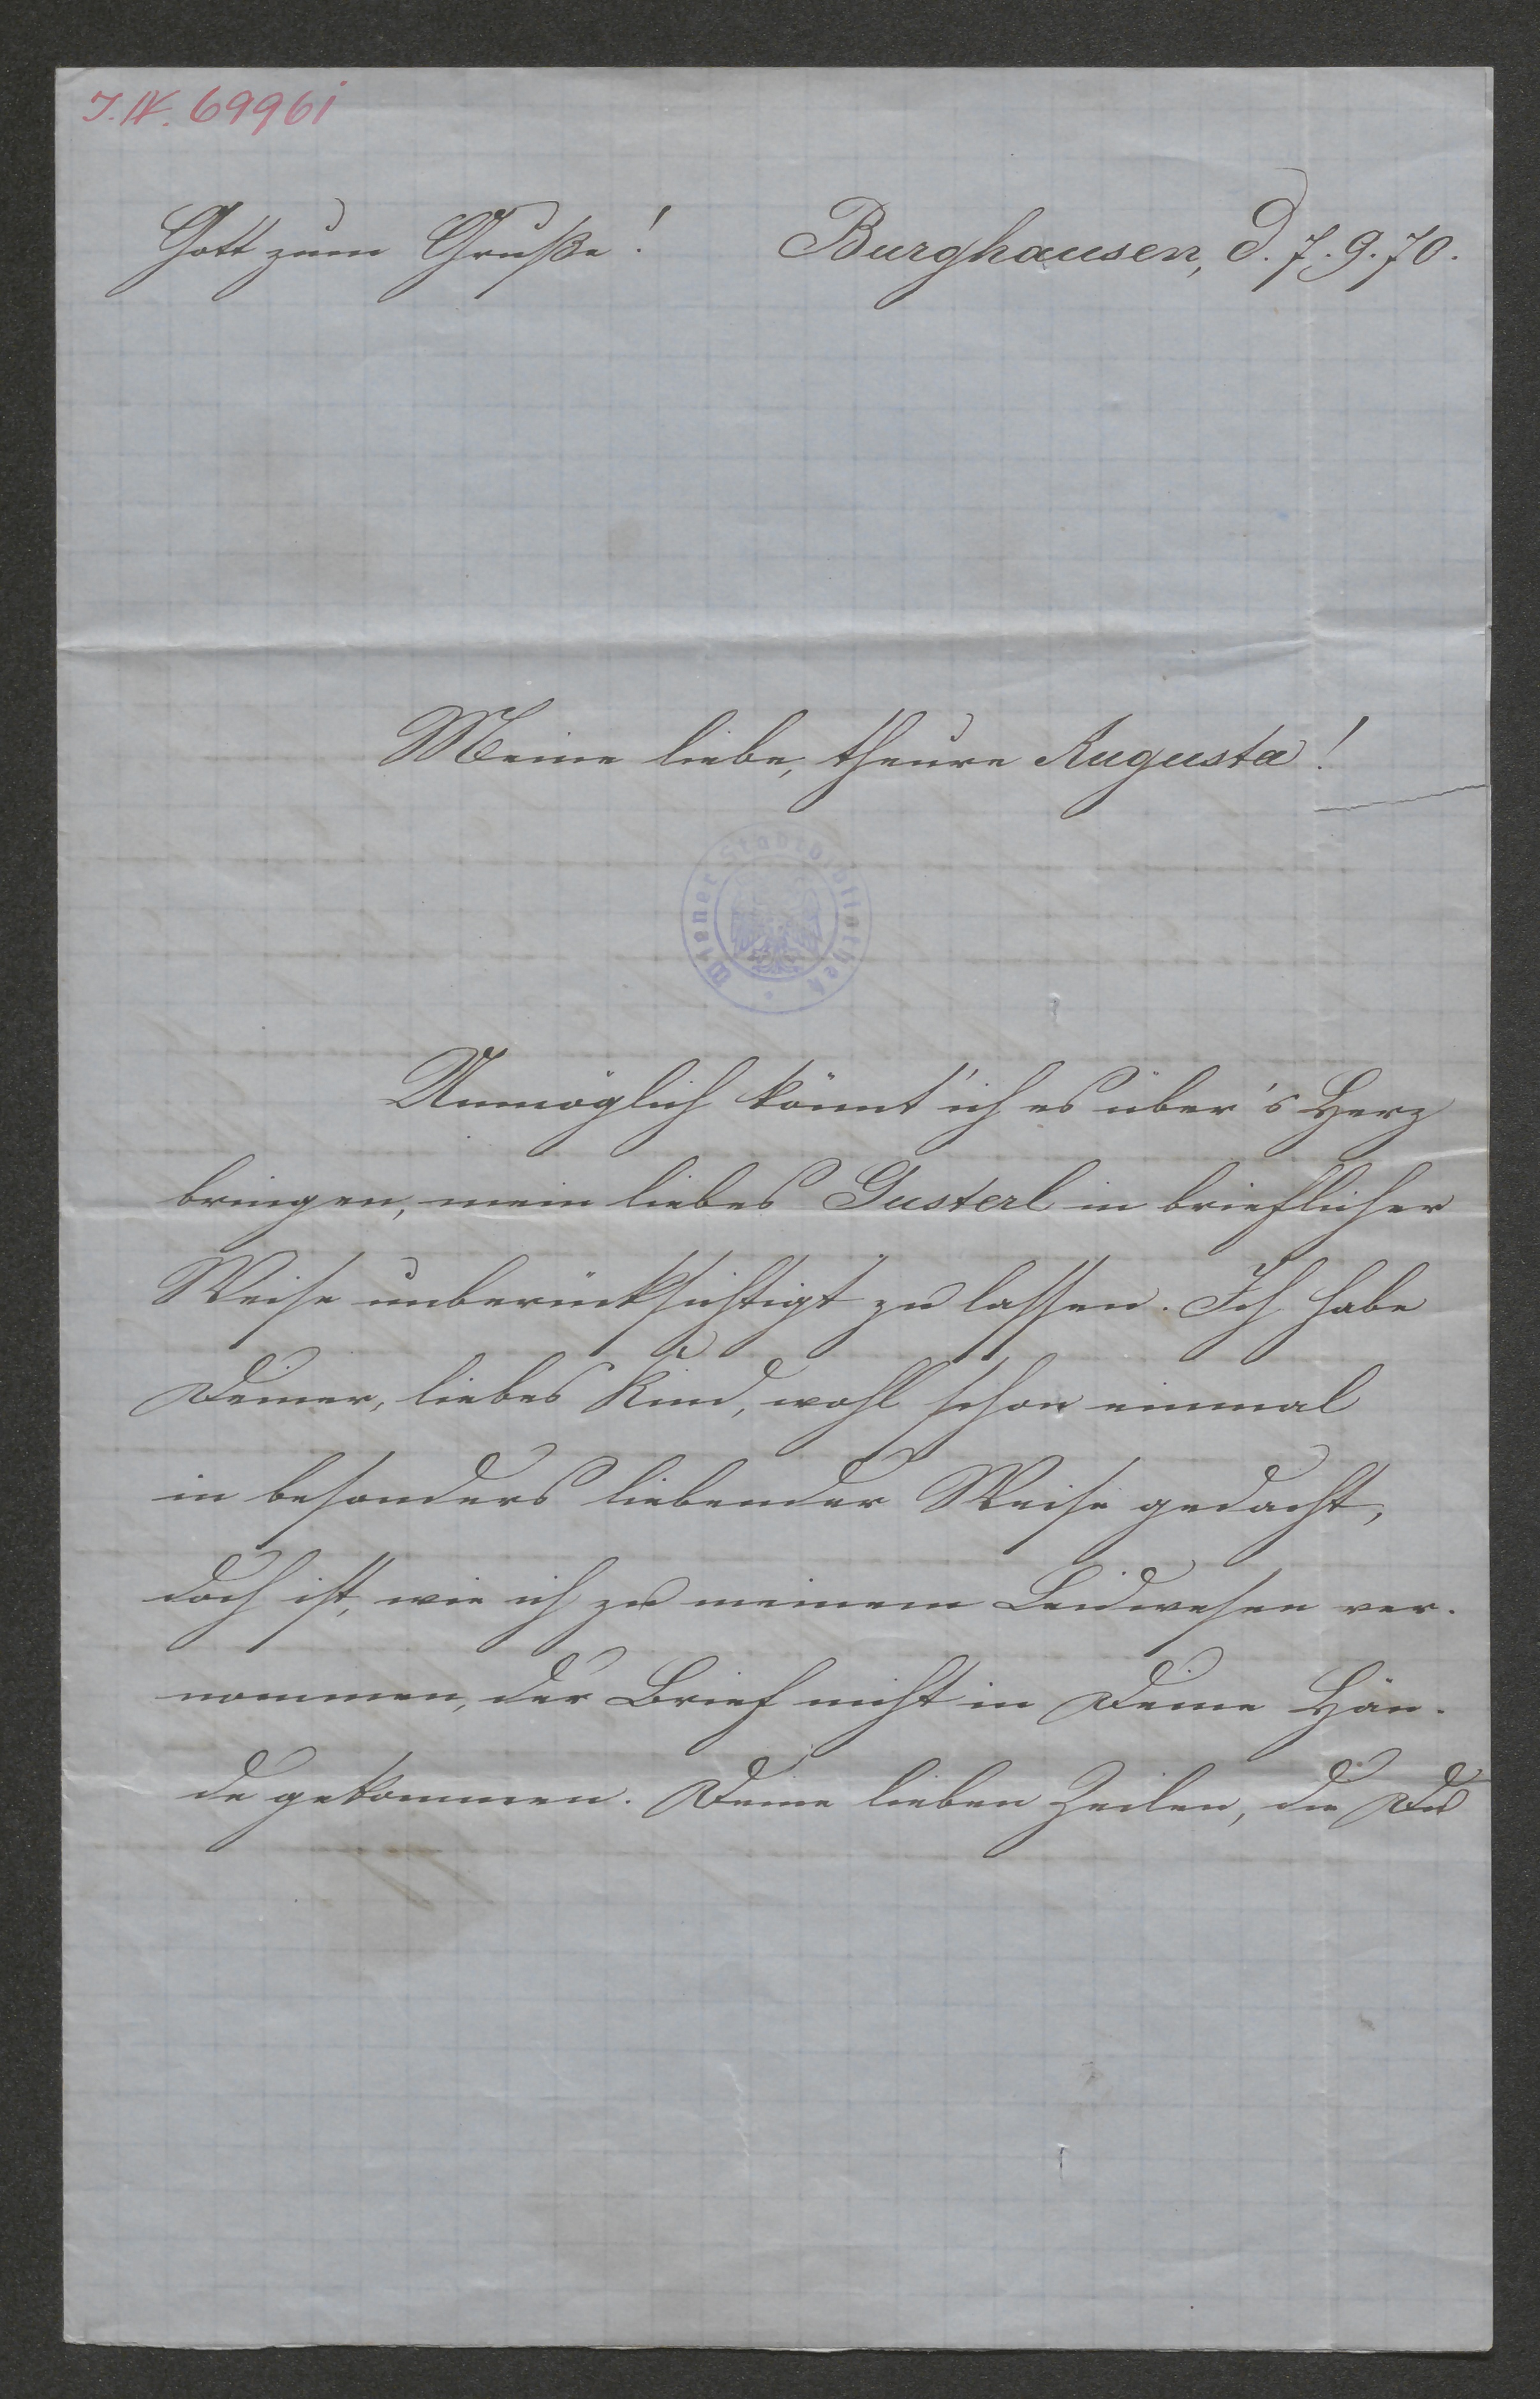 J.N. 69961
Gott zum Gruße! Burghausen, d. 7.9.70.
Meine liebe, theure Augusta!
Wiener Stadtbibliothek
Unmöglich könnt' ich es über's Herz
bringen, mein liebes Gusterl in brieflicher
Weise unberücksichtigt zu lassen. Ich habe
Deiner, liebes Kind, wohl schon einmal
in besonders liebender Weise gedacht,
doch ist, wie ich zu meinem Leidwesen ver-
nommen, der Brief nicht in Deine Hän-
de gekommen. Deine lieben Zeilen, die Du